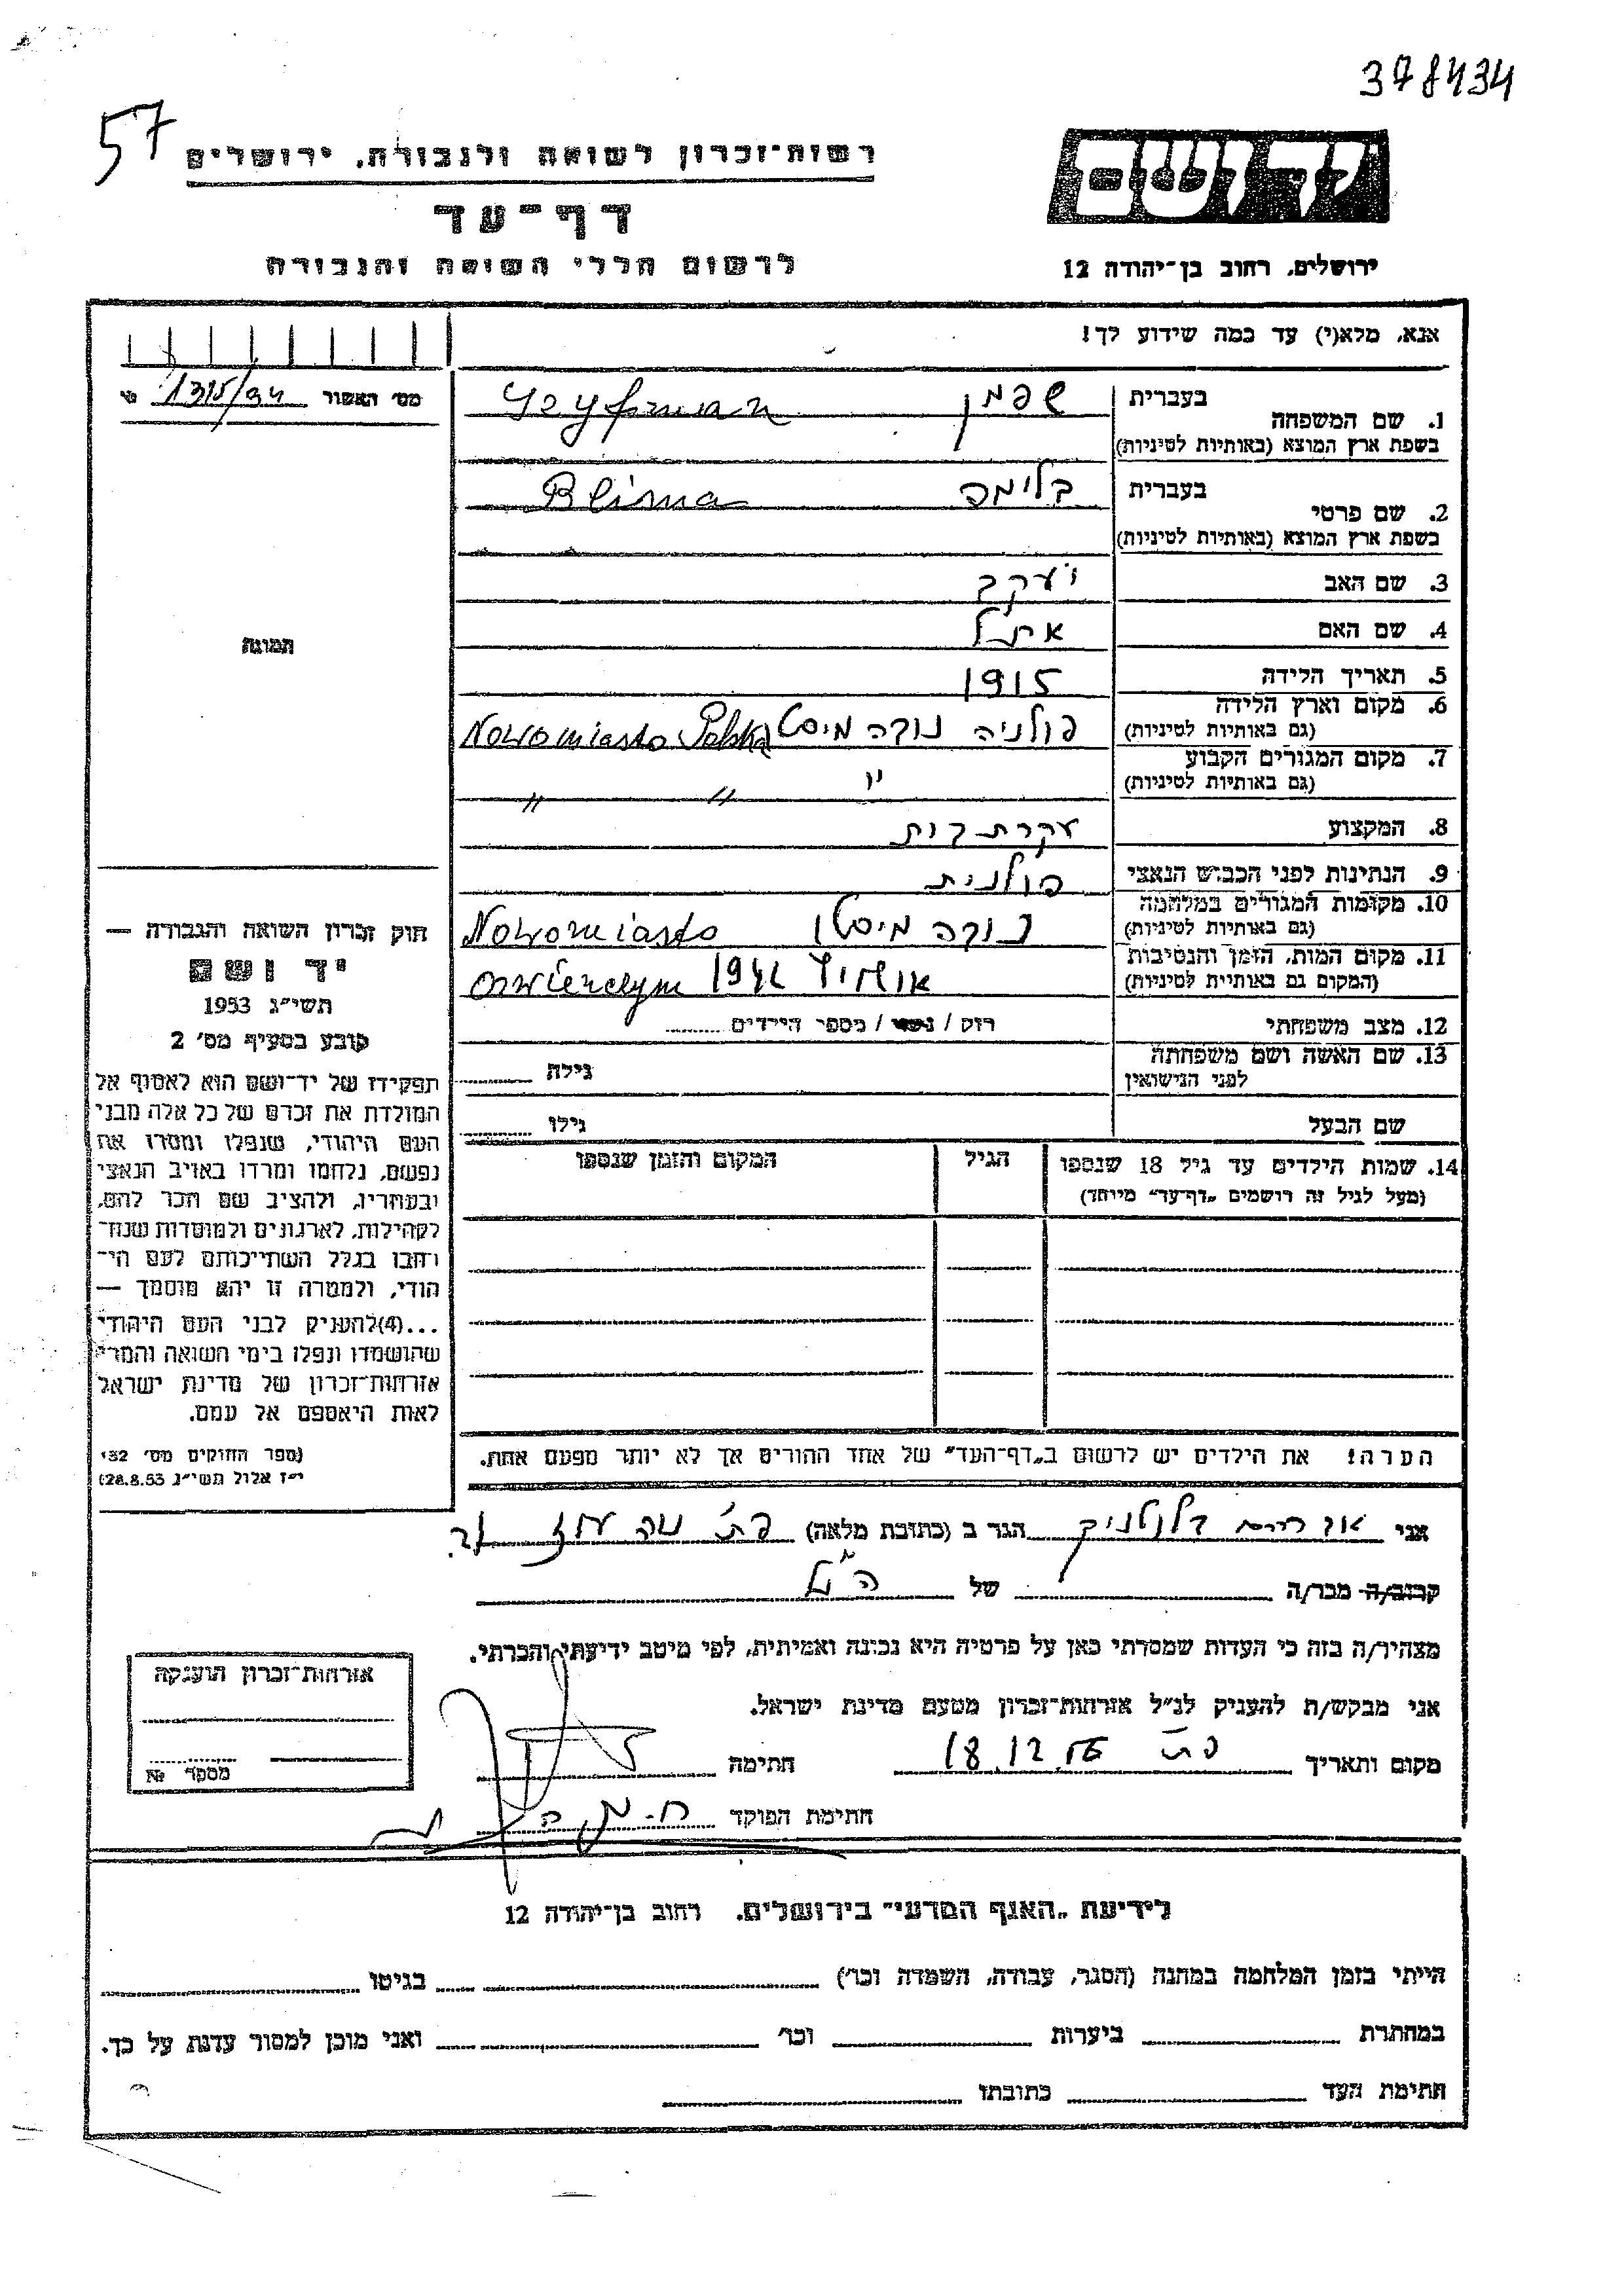 378434
57
רשות־זכרון לשואה ולגבורה, ירושלים
דף־עד
לרשום חללי השואה והגבורה
יד ושם
ירושלים, רחוב בן־יהודה 12
אנא, מלא(י) עד כמה שידוע לך!
מס' האשור 1315/34
תמונה
1. שם המשפחה
בעברית
בשפת ארץ המוצא (באותיות לטיניות)
2. שם פרטי
בעברית בלימה Blima
בשפת ארץ המוצא (באותיות לטיניות)
3. שם האב יעקב
4. שם האם אתל
5. תאריך הלידה 1915
6. מקום וארץ הלידה
(גם באותיות לטיניות) פולניה נובה מיסטו Nowomiasto Polska
7. מקום המגורים הקבוע
(גם באותיות לטיניות) " " "
8. המקצוע עקרת בית
9. הנתינות לפני הכבוש הנאצי פולנית
10. מקומות המגורים במלחמה
(גם באותיות לטיניות) נובה מיסטו Nowomiasto
11. מקום המות, הזמן והנסיבות
(המקום גם באותיות לטיניות) אושויץ
12. מצב משפחתי רוק / נשוי / מספר הילדים
13. שם האשה ושם משפחתה
לפני הנישואין
גילה
שם הבעל
גילו
14. שמות הילדים עד גיל 18 שנספו
(מעל לגיל זה רושמים „דף־עד" מיוחד)
הגיל
המקום והזמן שנספו
הערה! את הילדים יש לרשום ב„דף־העד" של אחד ההורים אך לא יותר מפעם אחת.
חוק זכרון השואה והגבורה —
יד ושם
תשי"ג 1953
קובע בסעיף מס' 2
תפקידו של יד־ושם הוא לאסוף אל
המולדת את זכרם של כל אלה מבני
העם היהודי, שנפלו ומסרו את
נפשם, נלחמו ומרדו באויב הנאצי
ובעוזריו, ולהציב שם וזכר להם,
לקהילות, לארגונים ולמוסדות שנח־
רבו בגלל השתייכותם לעם הי־
הודי, ולמטרה זו יהא מוסמך —
...(4)להעניק לבני העם היהודי
שהושמדו ונפלו בימי השואה והמרי
אזרחות־זכרון של מדינת ישראל
לאות היאספם אל עמם.
(ספר החוקים מס' 132
י"ז אלול תשי"ג 28.8.53)
אני הגר ב (כתובת מלאה)
קרוב/ה מכר/ה של הנ"ל
מצהיר/ה בזה כי העדות שמסרתי כאן על פרטיה היא נכונה ואמיתית, לפי מיטב ידיעתי והכרתי.
אני מבקש/ת להעניק לנ"ל אזרחות־זכרון מטעם מדינת ישראל.
מקום ותאריך
חתימה
חתימת הפוקד
אזרחות־זכרון הוענקה
מספר №
לידיעת „האגף המדעי" בירושלים, רחוב בן־יהודה 12
הייתי בזמן המלחמה במחנה (הסגר, עבודה, השמדה וכו') בגיטו
במחתרת ביערות וכו' ואני מוכן למסור עדות על כך.
חתימת העד כתובתו